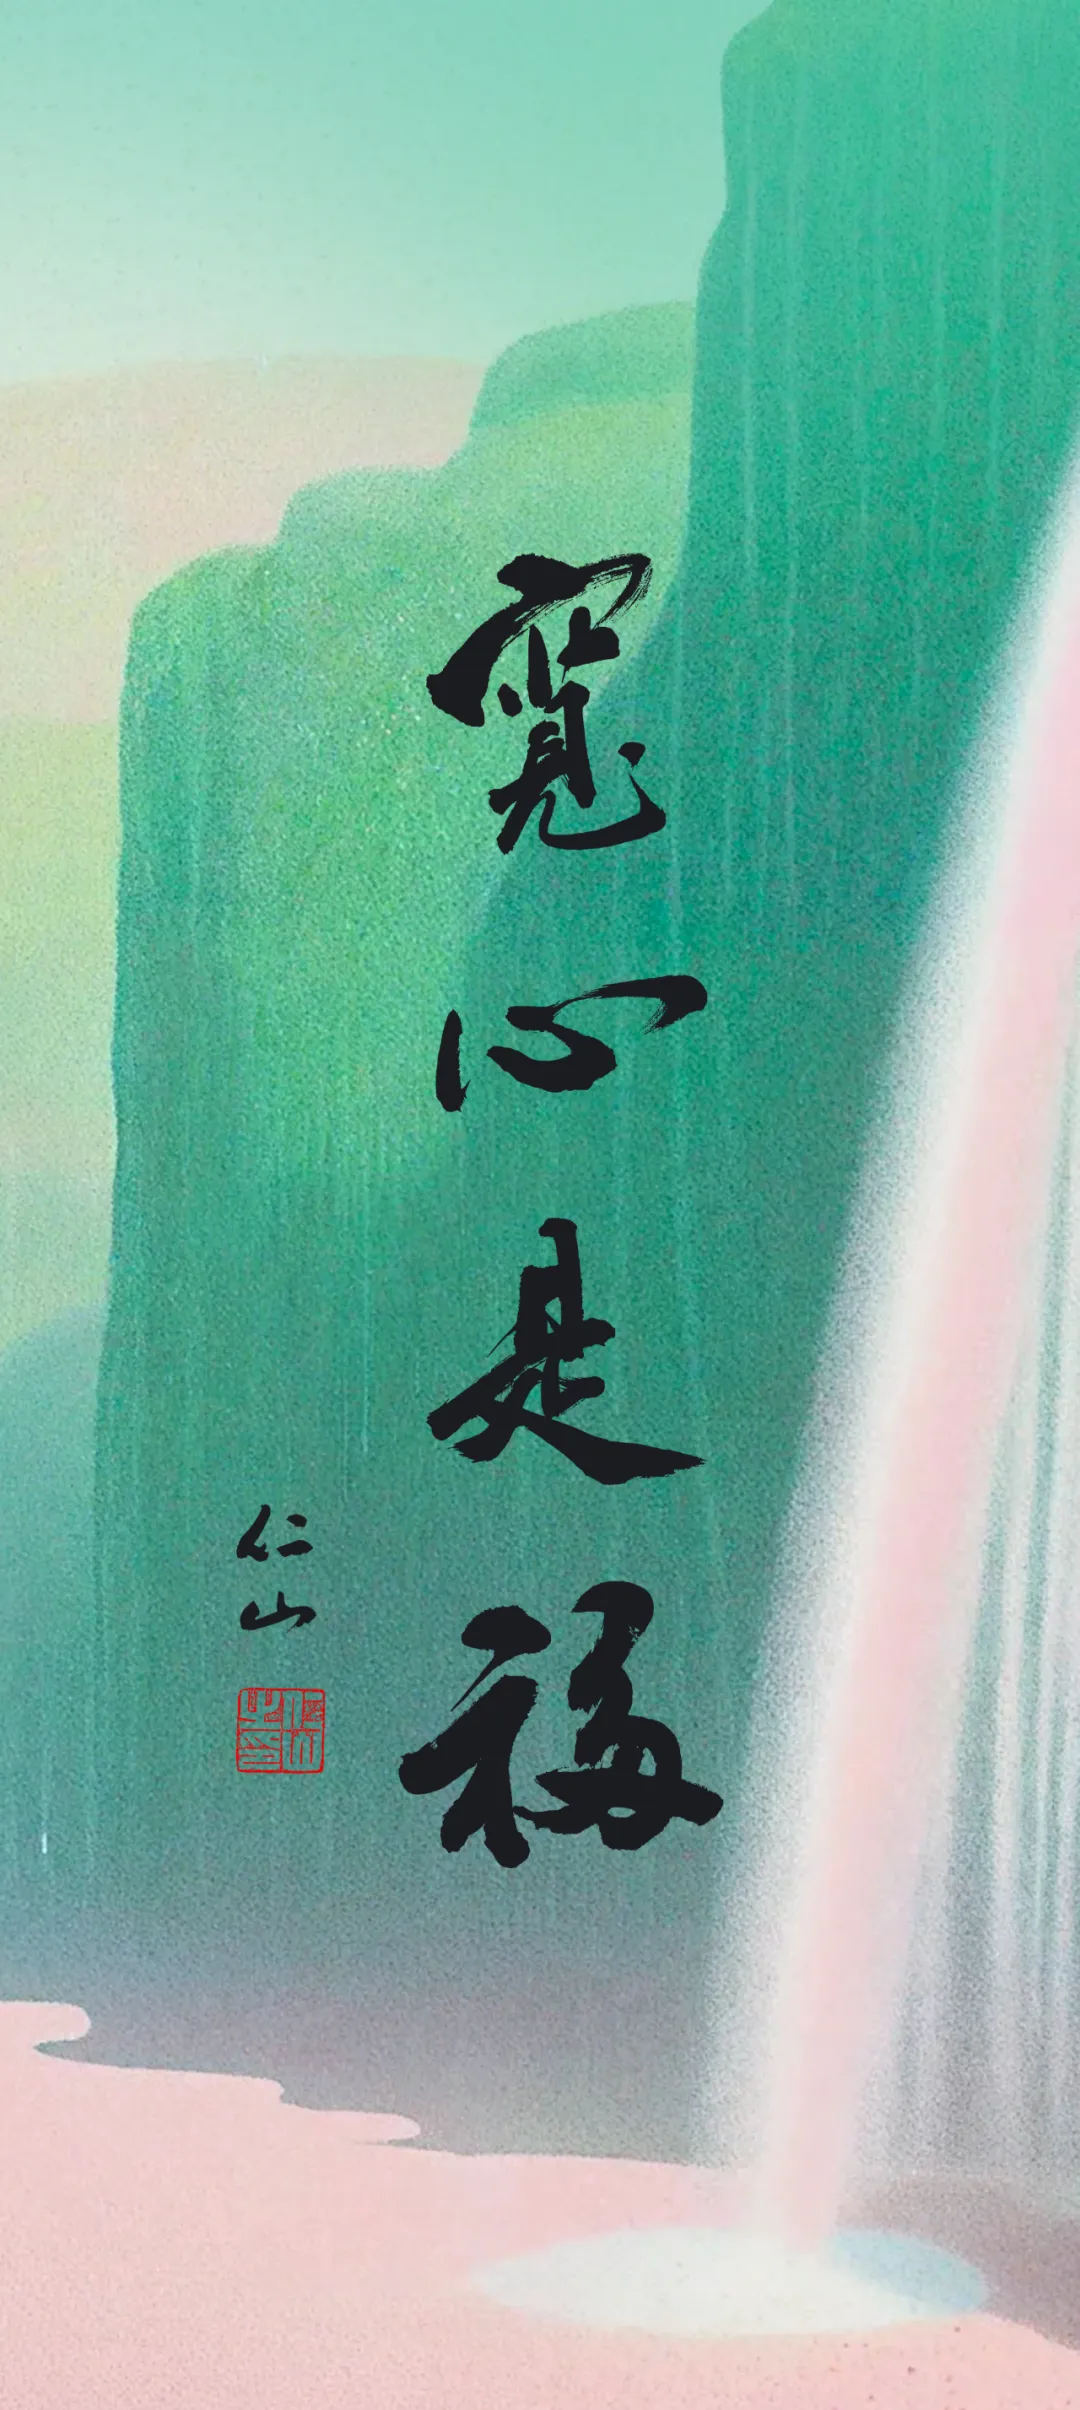 寬心是福
仁山